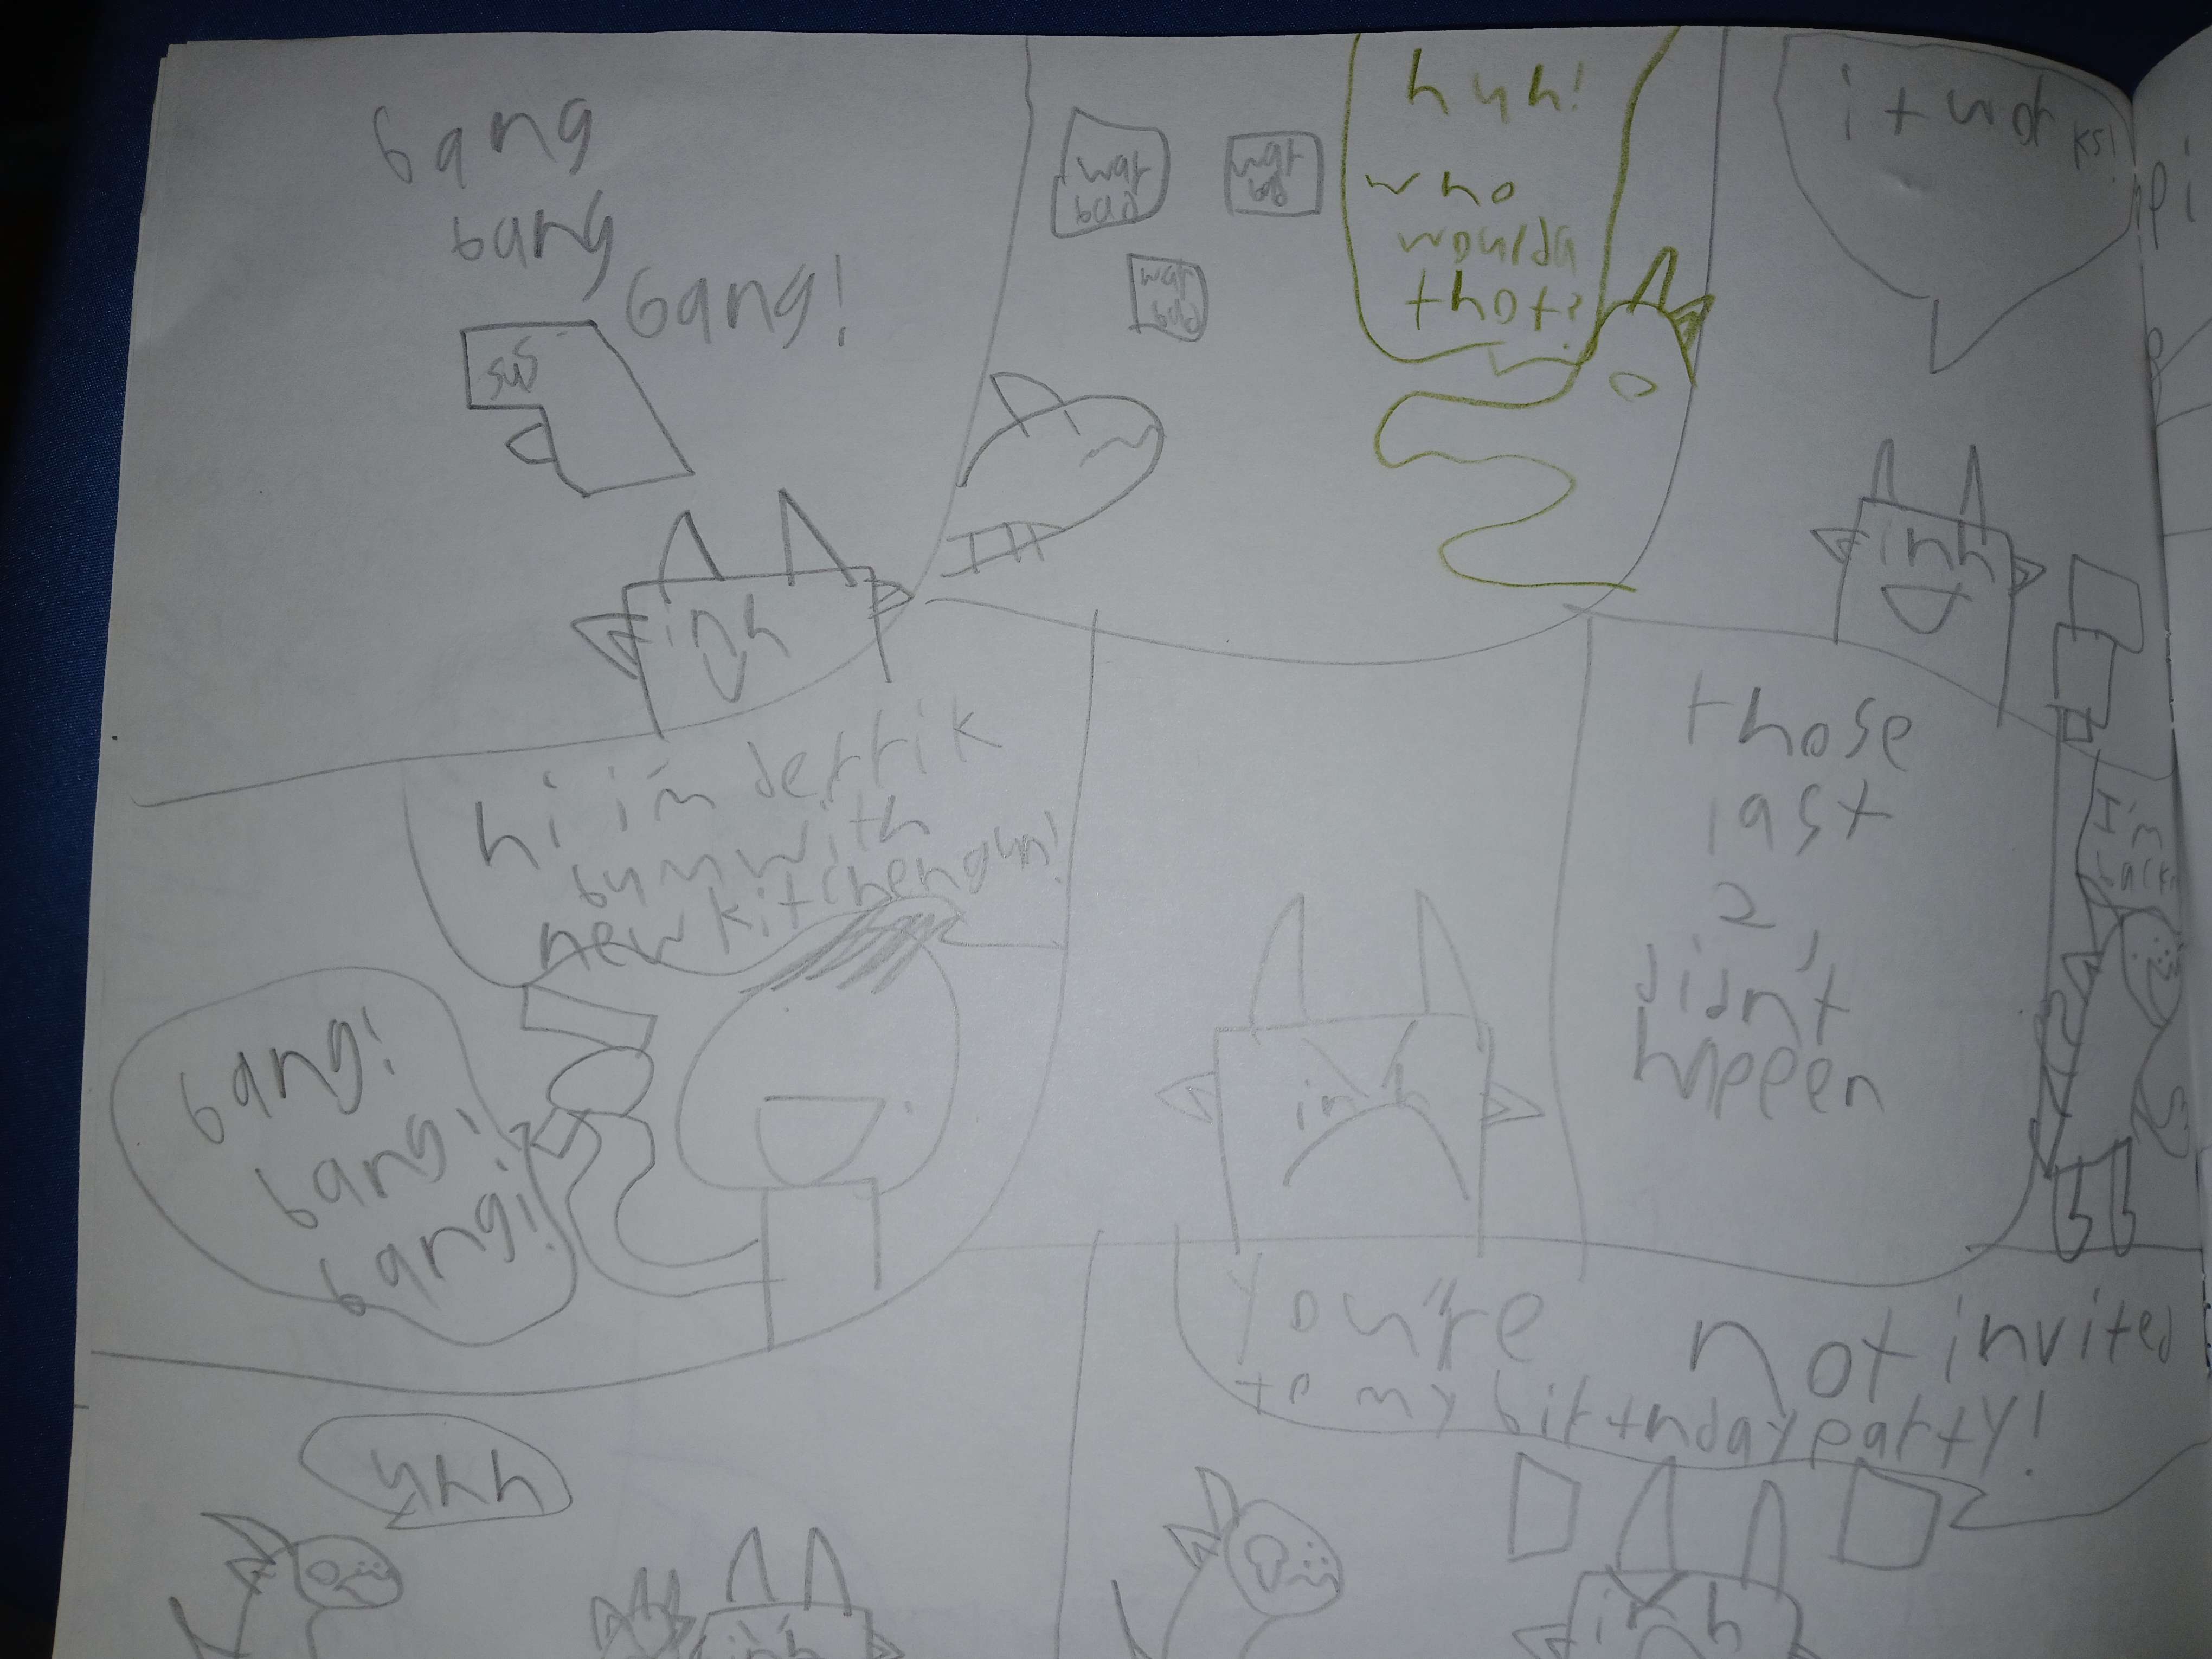 bang
bang
bang!
sus
inh
war
bad
war
bad
war
bad
huh!
who
woulda
thot?
it works!
inh
hi i'm derrik
bum with
new kitchengun!
bang!
bang!
bang!
inh
those
last
2
didn't
happen
I'm
back
uhh
inh
you're not invited
to my birthday party!
inh